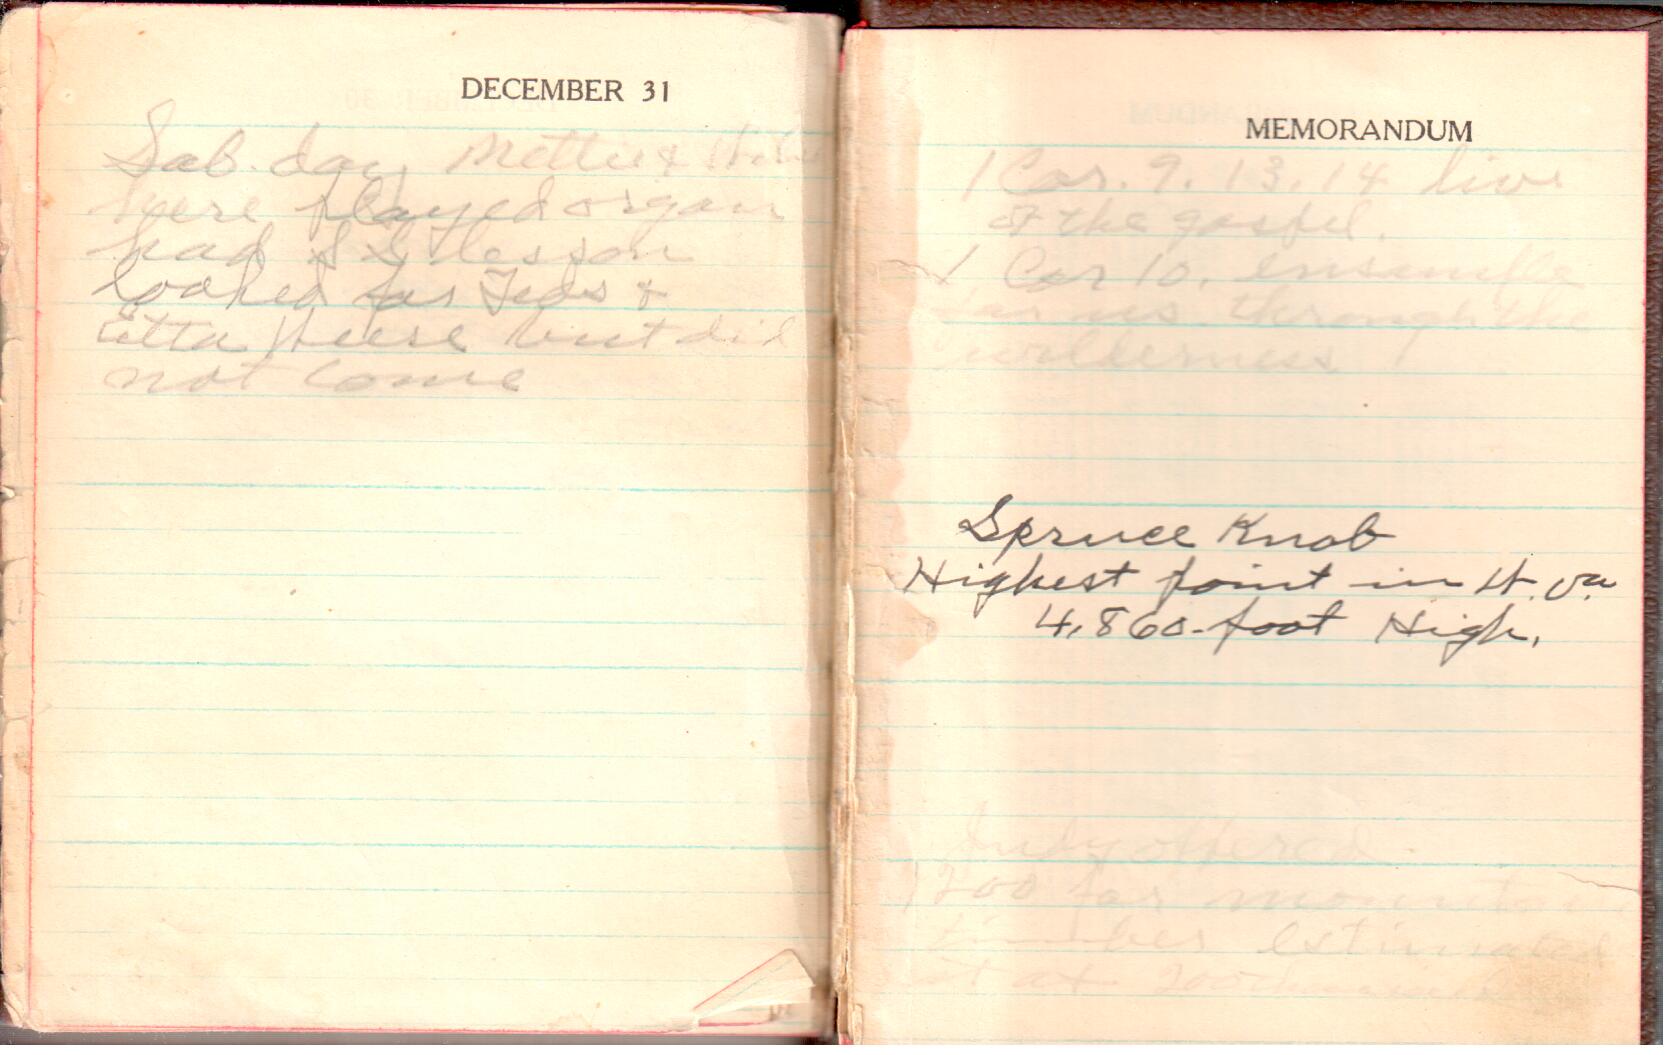 DECEMBER 31
Sab. day, Mettie &
here played organ
had S S lesson
looked for Teds &
Etta here but did
not come
MEMORANDUM
1 Cor. 9. 13. 14 live
of the gospel.
1 Cor 10. ensample
for us through the
wilderness
Spruce Knob
Highest point in W. Va
4,860 foot High.
Judy offered
1200 for mountain
timber estimated
it at 200